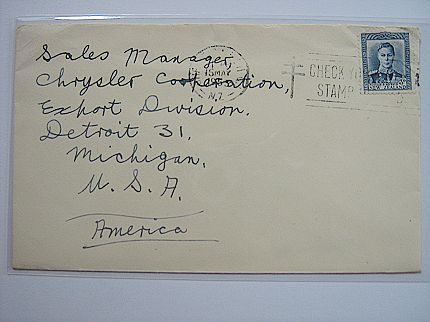 Sales Manager,
Chrysler Corporation,
Export Division.
Detroit 31,
Michigan.
U. S. A.
America
15 MAY
N.Z.
CHECK
STAMP
NEW ZEALAND